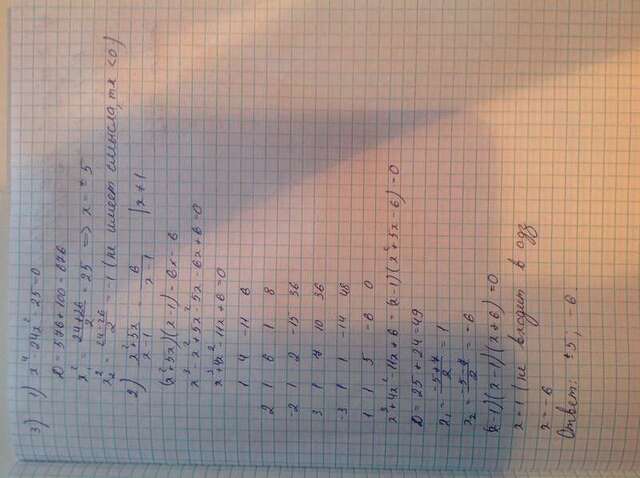 3) 1) x⁴-24x²-25=0
D=576+100=676
x²=(24+26)/2=25 ⇒ x=±5
x₂²=(24-26)/2=-1 (не имеет смысла, тк <0)
2) (x²+5x)/(x-1)=6/(x-1) | x≠1
(x²+5x)(x-1)=6x-6
x³-x²+5x²-5x-6x+6=0
x³+4x²-11x+6=0
1 4 -11 6
2 1 6 1 8
-2 1 2 -15 36
3 1 7 10 36
-3 1 1 -14 48
1 1 5 -6 0
x³+4x²-11x+6=(x-1)(x²+5x-6)=0
D=25+24=49
x₁=(-5+7)/2=1
x₂=(-5-7)/2=-6
(x-1)(x-1)(x+6)=0
x=1 (не входит в одз
x=-6
Ответ: ±5; -6